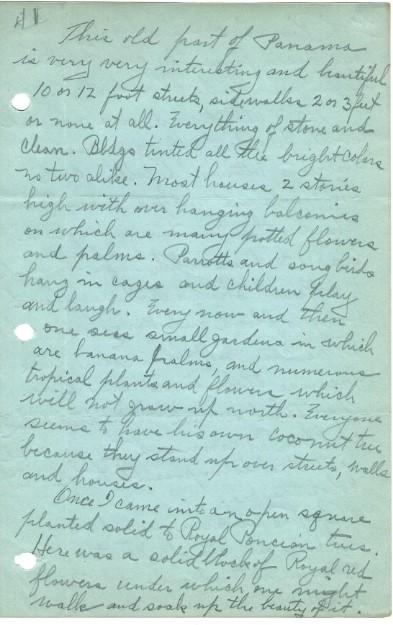 11
This old part of Panama
is very very interesting and beautiful
10 or 12 foot streets, sidewalks 2 or 3 feet
or none at all. Everything of stone and
clean. Bldgs tinted all the bright colors
no two alike. Most houses 2 stories
high with over hanging balconies
on which are many potted flowers
and palms. Parrotts and song birds
hang in cages and children play
and laugh. Every now and then
one sees small gardens in which
are banana palms, and numerous
tropical plants and flowers which
will not grow up north. Everyone
seems to have his own coconut tree
because they stand up over streets, walls
and houses.
Once I came into an open square
planted solid to Royal Poncian trees.
Here was a solid block of Royal red
flowers under which one might
walk and soak up the beauty of it.